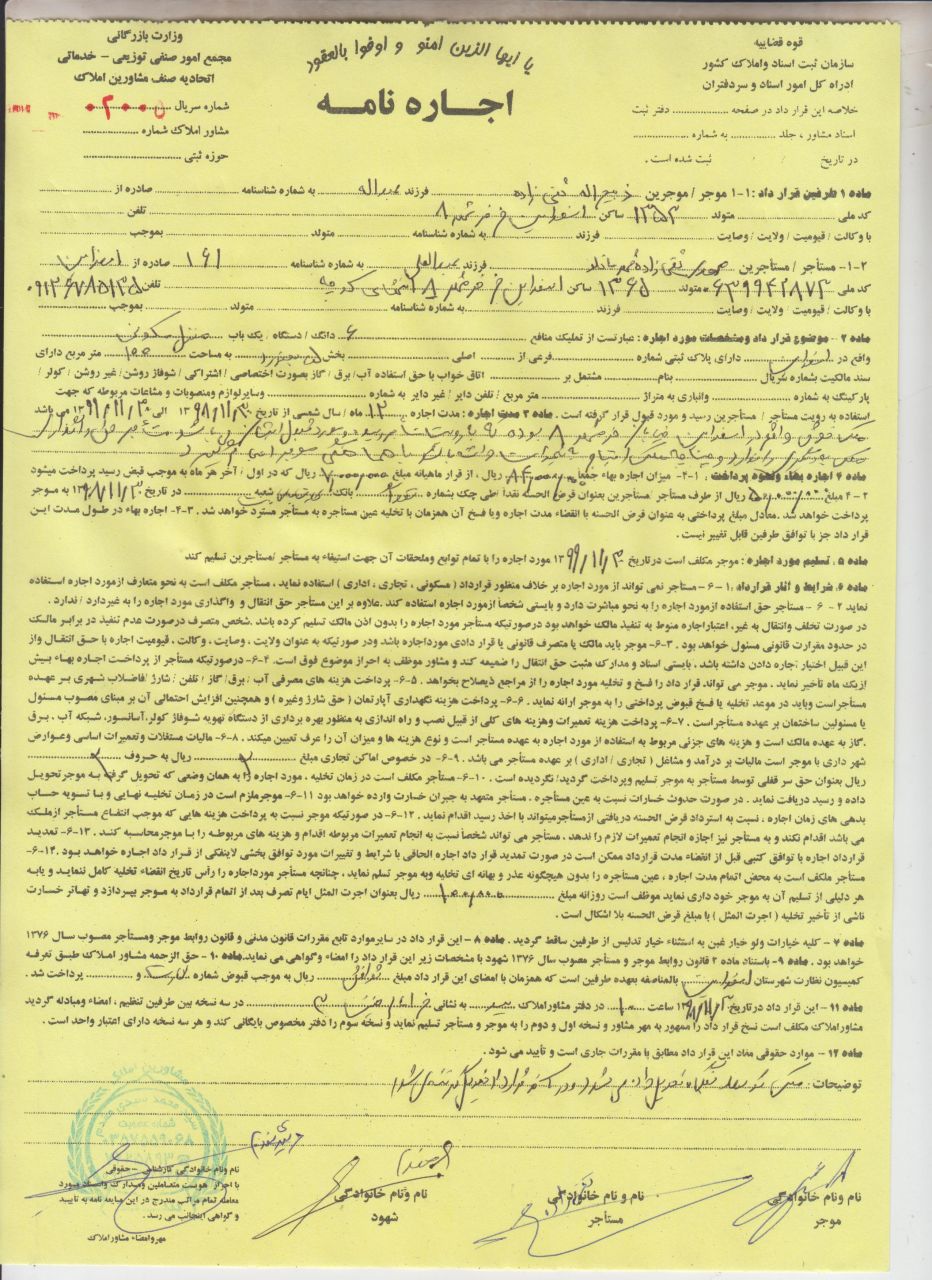 یا ایها الذین امنو و اوفوا بالعقود
قوه قضاییه
سازمان ثبت اسناد واملاک کشور
اداره کل امور اسناد و سردفتران
خلاصه این قرار داد در صفحه .......... دفتر ثبت
اسناد مشاور ، جلد .......... به شماره ..........
در تاریخ / / ثبت شده است .
اجـاره نامـه
وزارت بازرگانی
مجمع امور صنفی توزیعی - خدماتی
اتحادیه صنف مشاورین املاک
شماره سریال ۰۲۰۰۰۵
مشاور املاک شماره ..........
حوزه ثبتی ..........
ماده ۱ طرفین قرار داد : ۱-۱ موجر / موجرین ذبیح اله تقی زاده فرزند عبداله به شماره شناسنامه .......... صادره از ..........
کد ملی .......... متولد ۱۳۵۳ ساکن اسفراین خ خرمشهر ۸ تلفن ..........
با وکالت / قیمومیت / ولایت / وصایت .......... فرزند .......... به شماره شناسنامه .......... متولد .......... بموجب ..........
۱-۲- مستأجر / مستأجرین تقی زاده فرزند عبدالعلی به شماره شناسنامه ۱۶۱ صادره از اسفراین
کد ملی ۰۶۳۹۹۴۲۸۷۳ متولد ۱۳۶۵ ساکن اسفراین خ خرمشهر ۸ انتهای کوچه تلفن
با وکالت / قیمومیت / ولایت / وصایت .......... فرزند .......... به شماره شناسنامه .......... متولد .......... بموجب ..........
ماده ۲ - موضوع قرار داد ومشخصات مورد اجاره : عبارتست از تملیک منافع ۶ دانگ / دستگاه / یک باب منزل مسکونی
واقع در اسفراین دارای پلاک ثبتی شماره .......... فرعی از .......... اصلی .......... بخش .......... به مساحت ۱۵۵ متر مربع دارای
سند مالکیت بشماره سریال .......... بنام .......... مشتمل بر .......... اتاق خواب با حق استفاده آب/ برق / گاز بصورت اختصاصی / اشتراکی / شوفاژ روشن/ غیر روشن / کولر /
پارکینگ به شماره .......... وانباری به متراژ .......... متر مربع / تلفن دایر / غیر دایر به شماره .......... وسایرلوازم ومنصوبات و مشاعات مربوطه که جهت
استفاده به رویت مستأجر / مستأجرین رسید و مورد قبول قرار گرفته است . ماده ۳ مدت اجاره : مدت اجاره ۱۲ ماه / سال شمسی از تاریخ ۱۳۹۸/۱۱/۳۰ الی ۱۳۹۹/۱۱/۳۰ می باشد
ماده ۴ اجاره بهاء ونحوه پرداخت : ۱-۴- میزان اجاره بهاء جمعاً ریال ، از قرار ماهیانه مبلغ ریال که در اول / آخر هر ماه به موجب قبض رسید پرداخت میشود
۲-۴ مبلغ ریال از طرف مستأجر /مستأجرین بعنوان قرض الحسنه نقدا /طی چک بشماره بانک شعبه در تاریخ ۱۳۹۸/۱۱/۳۰ به موجر
پرداخت خواهد شد .معادل مبلغ پرداختی به عنوان قرض الحسنه با انقضاء مدت اجاره ویا فسخ آن همزمان با تخلیه عین مستأجره به مستأجر مسترد خواهد شد . ۳-۴- اجاره بهاء در طول مدت این
قرار داد جز با توافق طرفین قابل تغییر نیست .
ماده ۵ . تسلیم مورد اجاره : موجر مکلف است درتاریخ ۱۳۹۹/۱۱/۳۰ مورد اجاره را با تمام توابع وملحقات آن جهت استیفاء به مستأجر /مستأجرین تسلیم کند
ماده ۶. شرایط و آثار قرارداد .۱-۶- مستأجر نمی تواند از مورد اجاره بر خلاف منظور قرارداد ( مسکونی ، تجاری ، اداری ) استفاده نماید . مستأجر مکلف است به نحو متعارف ازمورد اجاره استفاده
نماید ۲ - ۶ - مستأجر حق استفاده ازمورد اجاره را به نحو مباشرت دارد و بایستی شخصاً ازمورد اجاره استفاده کند .علاوه بر این مستأجر حق انتقال و واگذاری مورد اجاره را به غیردارد / ندارد .
در صورت تخلف وانتقال به غیر، اعتباراجاره منوط به تنفیذ مالک خواهد بود درصورتیکه مستأجر مورد اجاره را بدون اذن مالک تسلیم کرده باشد .شخص متصرف درصورت عدم تنفیذ در برابر مالک
در حدود مقرارت قانونی مسئول خواهد بود . ۳-۶- موجر باید مالک یا متصرف قانونی یا قرار دادی مورداجاره باشد ودر صورتیکه به عنوان ولایت . وصایت ، وکالت . قیمومیت اجاره با حق انتقال واز
این قبیل اختیار ؛اجاره دادن داشته باشد ، بایستی اسناد و مدارک مثبت حق انتقال را ضمیمه کند و مشاور موظف به احراز موضوع فوق است . ۴-۶- درصورتیکه مستأجر از پرداخت اجاره بهاء بیش
ازیک ماه تأخیر نماید . موجر می تواند. قرار داد را فسخ و تخلیه مورد اجاره را از مراجع ذیصلاح بخواهد . ۵-۶- پرداخت هزینه های مصرفی آب / برق/ گاز / تلفن / شارژ /فاضلاب شهری بر عهده
مستأجراست وباید در موعد تخلیه یا فسخ قبوض پرداختی را به موجر ارائه نماید . ۶-۶- پرداخت هزینه نگهداری آپارتمان ( حق شارژ وغیره ) و همچنین افزایش احتمالی آن بر مبنای مصوب مسئول
یا مسئولین ساختمان بر عهده مستأجراست . ۷-۶- پرداخت هزینه تعمیرات وهزینه های کلی از قبیل نصب و راه اندازی به منظور بهره برداری از دستگاه تهویه شوفاژ کولر،آسانسور، شبکه آب . برق
.گاز به عهده مالک است و هزینه های جزئی مربوط به استفاده از مورد اجاره به عهده مستأجر است و نوع هزینه ها و میزان آن را عرف تعیین میکند . ۸-۶- مالیات مستغلات وتعمیرات اساسی وعوارض
شهر داری با موجر است مالیات بر درآمد و مشاغل ( تجاری / اداری ) بر عهده مستأجر می باشد . ۹-۶- در خصوص اماکن تجاری مبلغ .......... ریال به حروف ..........
ریال بعنوان حق سر قفلی توسط مستأجر به موجر تسلیم وپرداخت گردید/ نگردیده است . ۱۰-۶- مستأجر مکلف است در زمان تخلیه . مورد اجاره را به همان وضعی که تحویل گرفته به موجرتحویل
داده و رسید دریافت نماید . در صورت حدوث خسارات نسبت به عین مستأجره . مستأجر متعهد به جبران خسارت وارده خواهد بود ۱۱-۶- موجرملزم است در زمان تخلیه نهایی و با تسویه حساب
بدهی های زمان اجاره ، نسبت به استرداد قرض الحسنه دریافتی ازمستأجرمیتواند با اخذ رسید اقدام نماید. ۱۲-۶- در صورتیکه موجر نسبت به پرداخت هزینه هایی که موجب انتفاع مستأجر ازملک
می باشد اقدام نکند و به مستأجر نیز اجازه انجام تعمیرات لازم را ندهد. مستأجر می تواند شخصاً نسبت به انجام تعمیرات مربوطه اقدام و هزینه های مربوطه را با موجرمحاسبه کند . ۱۳-۶- تمدید
قرارداد اجاره با توافق کتبی قبل از انقضاء مدت قرارداد ممکن است در صورت تمدید قرار داد اجاره الحاقی با شرایط و تغییرات مورد توافق بخشی لاینفکی از قرار داد اجاره خواهد بود .۱۴-۶-
مستأجر ملکف است به محض اتمام مدت اجاره ، عین مستأجره را بدون هیچگونه عذر و بهانه ای تخلیه وبه موجر تسلم نماید . چنانچه مستأجر مورداجاره را رأس تاریخ انقضاء تخلیه کامل ننماید و یابه
هر دلیلی از تسلیم آن به موجر خود داری نماید موظف است روزانه مبلغ ۱۰۰/۰۰۰ ریال بعنوان اجرت المثل ایام تصرف بعد از اتمام قرارداد به موجر بپردازد و تهاتر خسارت
ناشی از تأخیر تخلیه ( اجرت المثل ) با مبلغ قرض الحسنه بلا اشکال است .
ماده ۷ - کلیه خیارات ولو خیار غبن به استثناء خیار تدلیس از طرفین ساقط گردید . ماده ۸ - این قرار داد در سایرموارد تابع مقررات قانون مدنی و قانون روابط موجر ومستأجر مصوب سال ۱۳۷۶
خواهد بود . ماده ۹- باستناد ماده ۲ قانون روابط موجر و مستأجر مصوب سال ۱۳۷۶ شهود با مشخصات زیر این قرار داد را امضاء وگواهی می نماید. ماده ۱۰- حق الزحمه مشاور املاک طبق تعرفه
کمیسیون نظارت شهرستان اسفراین بالمناصفه بعهده طرفین است که همزمان با امضای این قرار داد مبلغ توافقی ریال به موجب قبوض شماره و .......... پرداخت شد .
ماده ۱۱ - این قرار داد درتاریخ ۱۳۹۸/۱۱/۳۰ ساعت ۱۰ در دفتر مشاوراملاک به نشانی در سه نسخه بین طرفین تنظیم ، امضاء ومبادله گردید
مشاوراملاک مکلف است نسخ قرار داد را ممهور به مهر مشاور و نسخه اول و دوم را به موجر و مستأجر تسلیم نماید و نسخه سوم را دفتر مخصوص بایگانی کند و هر سه نسخه دارای اعتبار واحد است .
ماده ۱۲ - موارد حقوقی مفاد این قرار داد مطابق با مقررات جاری است و تأیید می شود .
توضیحات :
نام ونام خانوادگی
موجر
نام و نام خانوادگی
مستأجر
نام ونام خانوادگی
شهود
نام ونام خانوادگی کارشناسی - حقوقی
با احراز هویت متعاملین ومدارک واسناد مورد
معامله تمام مراتب مندرج در این مبایعه نامه به تایید
و گواهی اینجانب می رسد .
مهرو امضاء مشاوراملاک